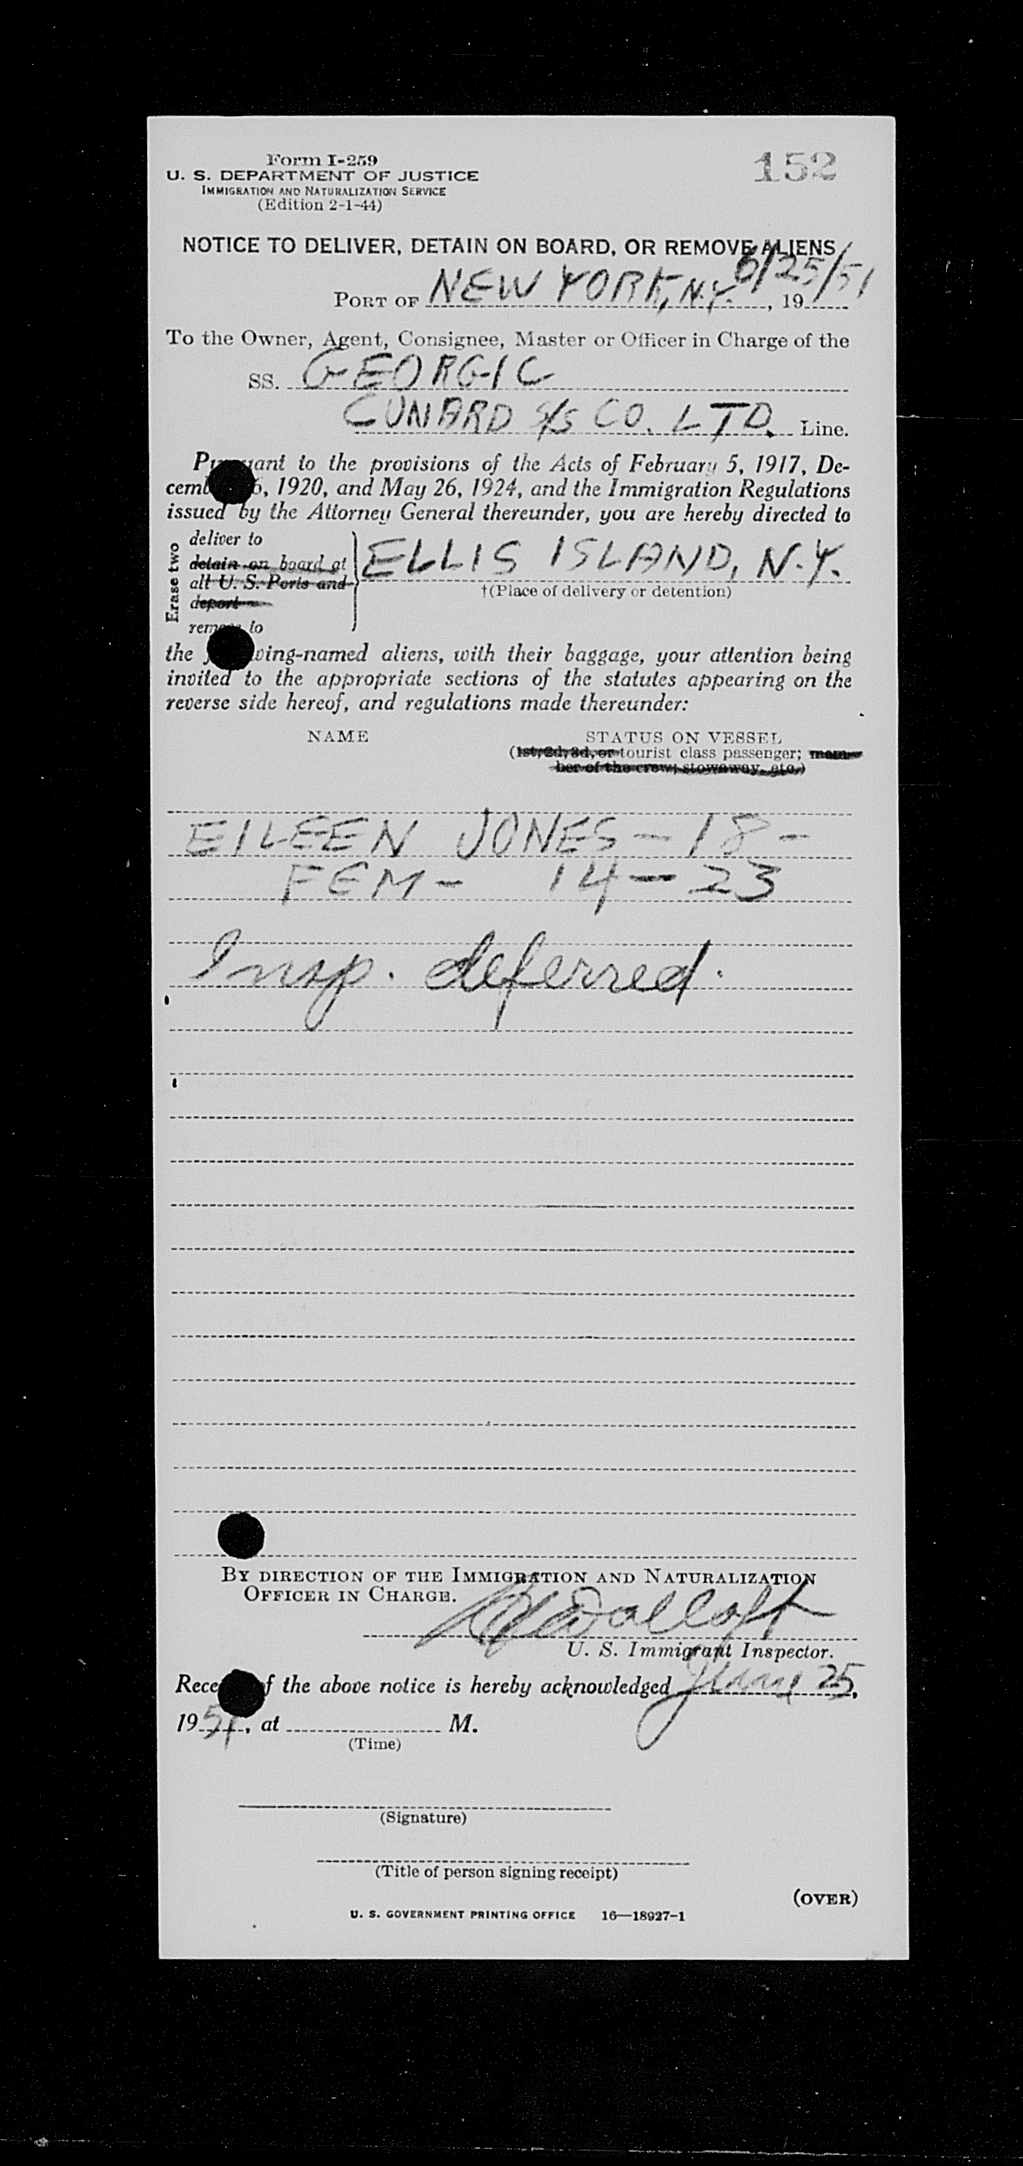 Form I-259
152
U. S. DEPARTMENT OF JUSTICE
IMMIGRATION AND NATURALIZATION SERVICE
(Edition 2-1-44)
NOTICE TO DELIVER, DETAIN ON BOARD, OR REMOVE ALIENS
PORT OF NEW YORK, N.Y. 6/25/51, 19
To the Owner, Agent, Consignee, Master or Officer in Charge of the
SS. GEORGIC
CUNARD S/S CO. LTD. Line.
Pursuant to the provisions of the Acts of February 5, 1917, De-
cember 26, 1920, and May 26, 1924, and the Immigration Regulations
issued by the Attorney General thereunder, you are hereby directed to
Erase two
deliver to
detain on board at
all U. S. Ports and
deport
remove to
ELLIS ISLAND, N.Y.
†(Place of delivery or detention)
the following-named aliens, with their baggage, your attention being
invited to the appropriate sections of the statutes appearing on the
reverse side hereof, and regulations made thereunder:
NAME
STATUS ON VESSEL
(1st, 2d, 3d, or tourist class passenger; mem-
ber of the crew; stowaway, etc.)
EILEEN JONES - 18 -
FEM - 14 - 23
Insp. deferred.
BY DIRECTION OF THE IMMIGRATION AND NATURALIZATION
OFFICER IN CHARGE.
U. S. Immigrant Inspector.
Receipt of the above notice is hereby acknowledged June 25,
1951, at M.
(Time)
(Signature)
(Title of person signing receipt)
(OVER)
U. S. GOVERNMENT PRINTING OFFICE 16—18927-1